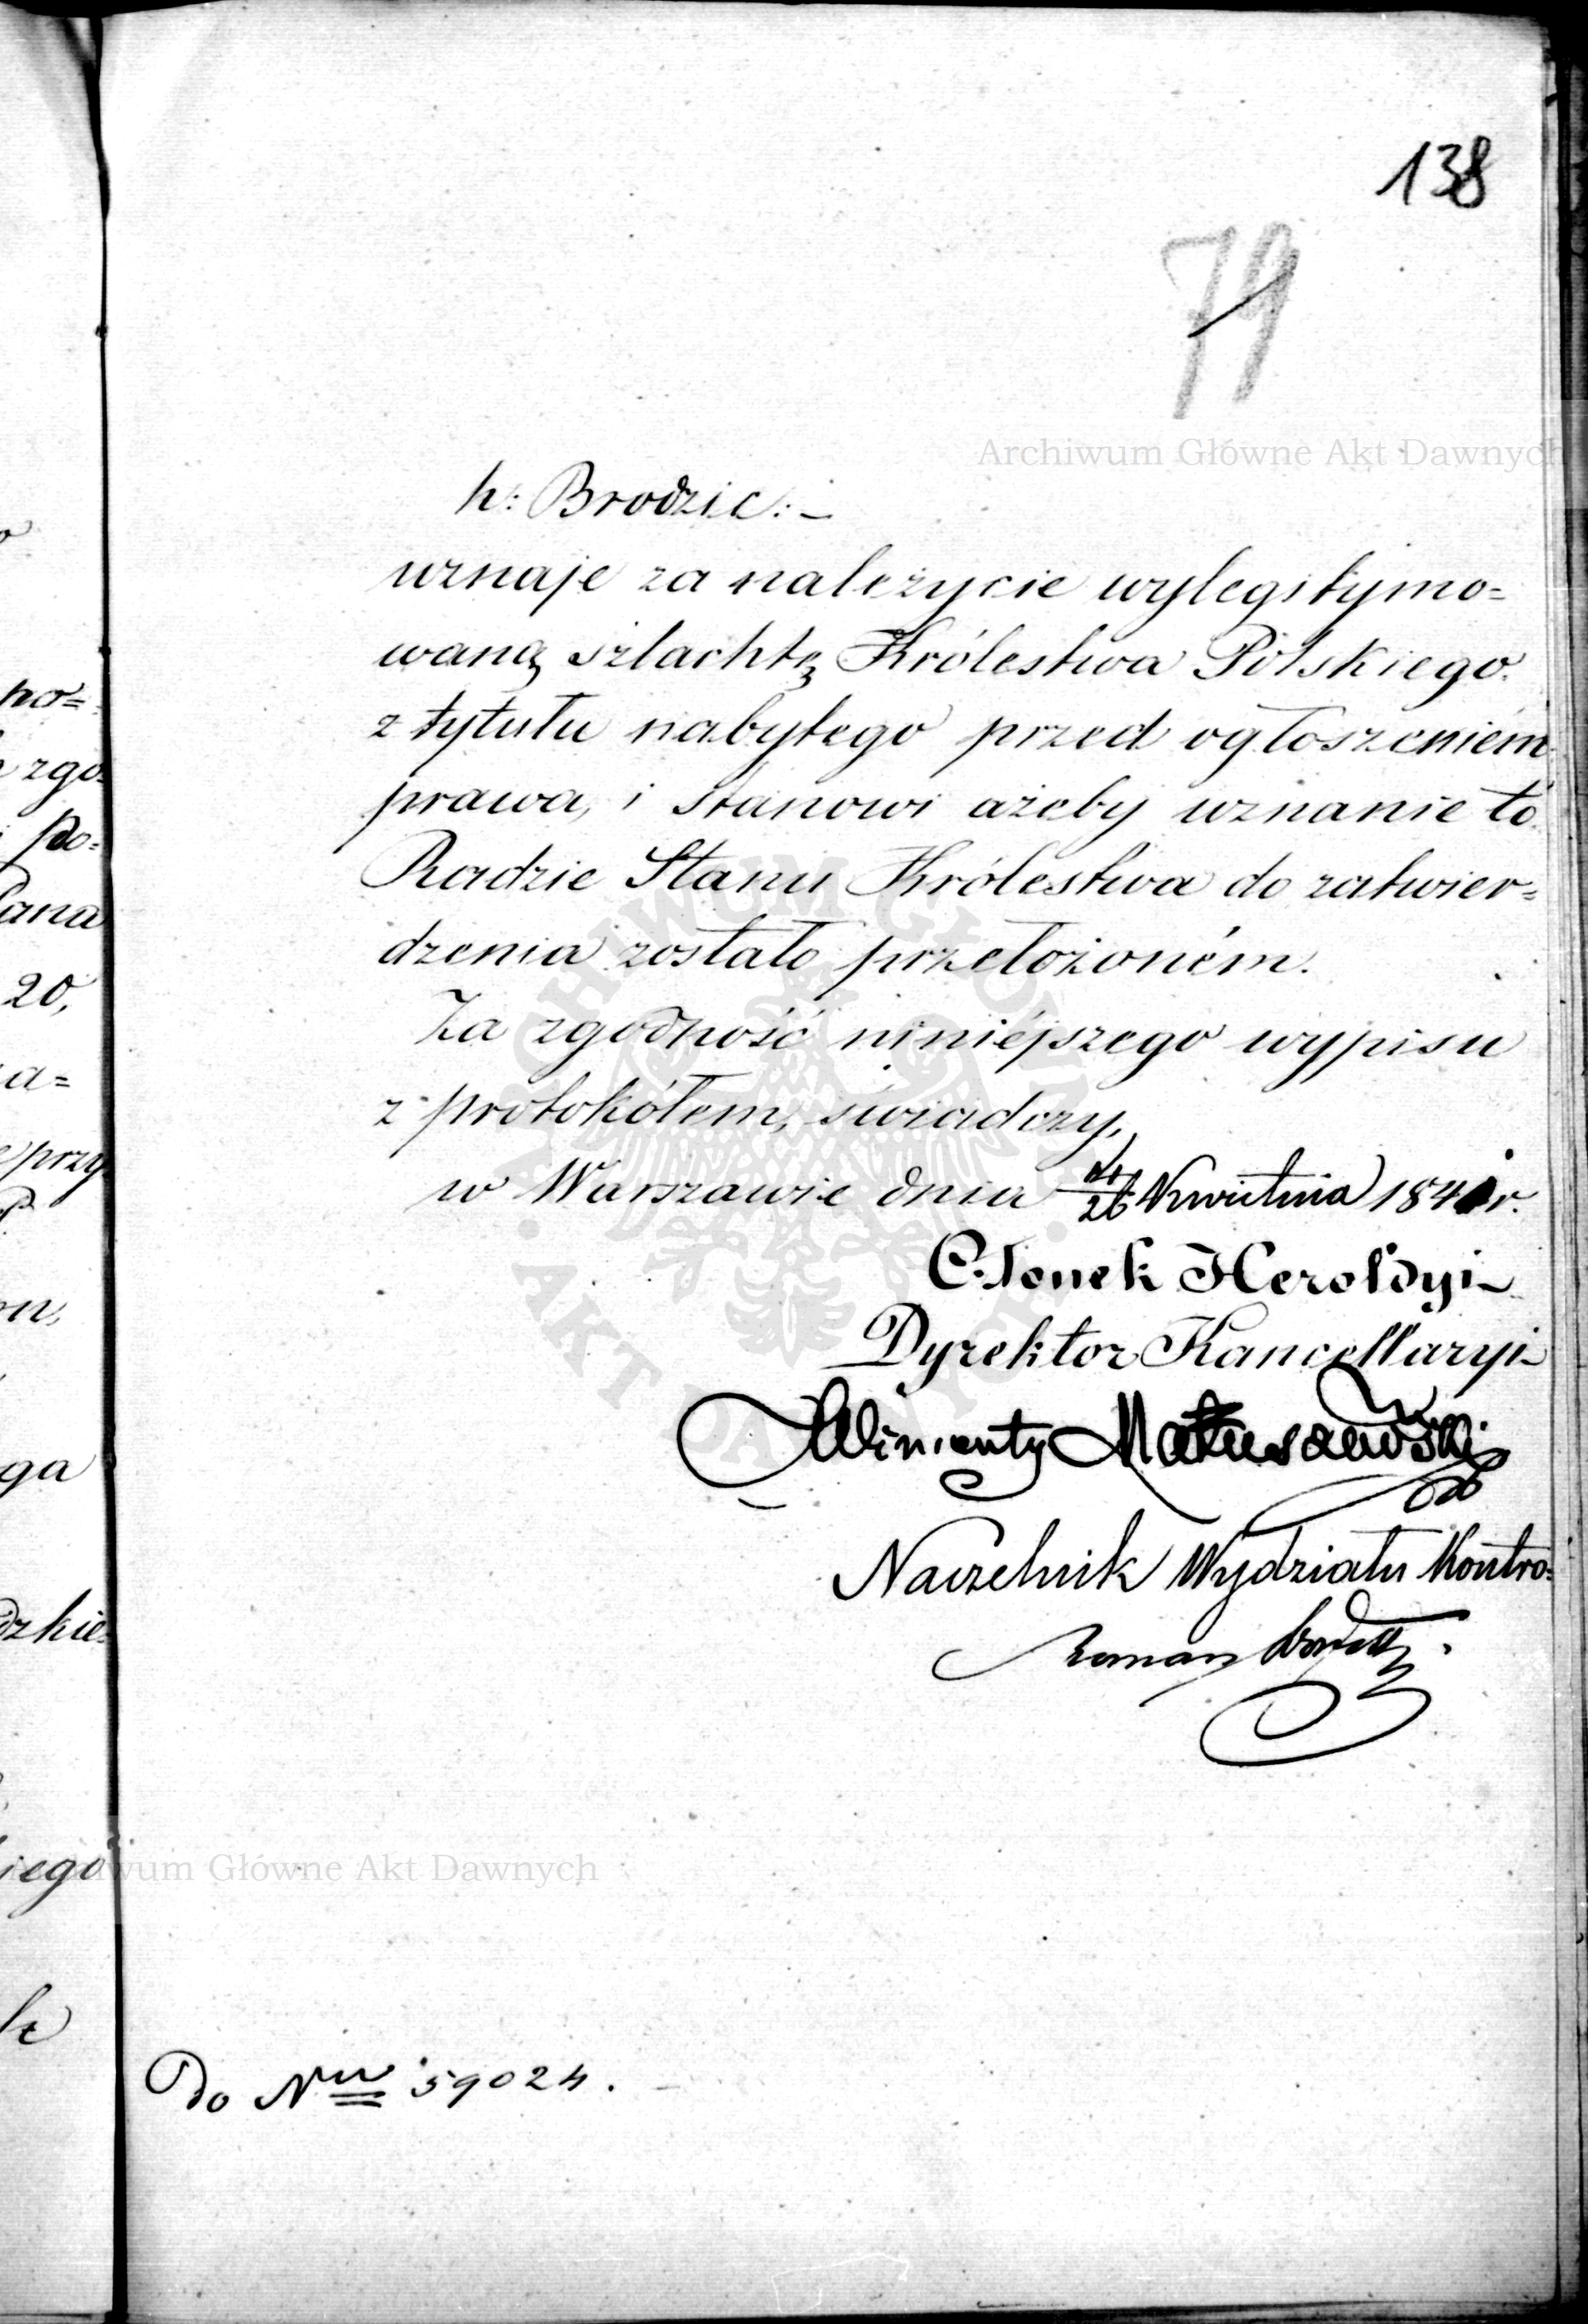 138
79
Archiwum Główne Akt Dawnych
h: Brodzic:–
uznaje za należycie wylegitymo=
waną szlachtę Królestwa Polskiego
z tytułu nabytego przed ogłoszeniem
prawa, i stanowi ażeby uznanie to
Radzie Stanu Królestwa do zatwier=
dzenia zostało przełożoném.
Za zgodność niniéjszego wypisu
z protokółem, świadczy,
w Warszawie dnia 14/26 Kwietnia 1841 r.
Członek Heroldyi
Dyrektor Kancellaryi
Wincenty Matuszewski
Naczelnik Wydziału Kontro:
Roman
Do Nru 59024.
no=
zgo
po=
Pana
20,
a=
przy
ga
dzkie
iego
Archiwum Główne Akt Dawnych
ARCHIWUM GŁÓWNE · AKT DAWNYCH ·